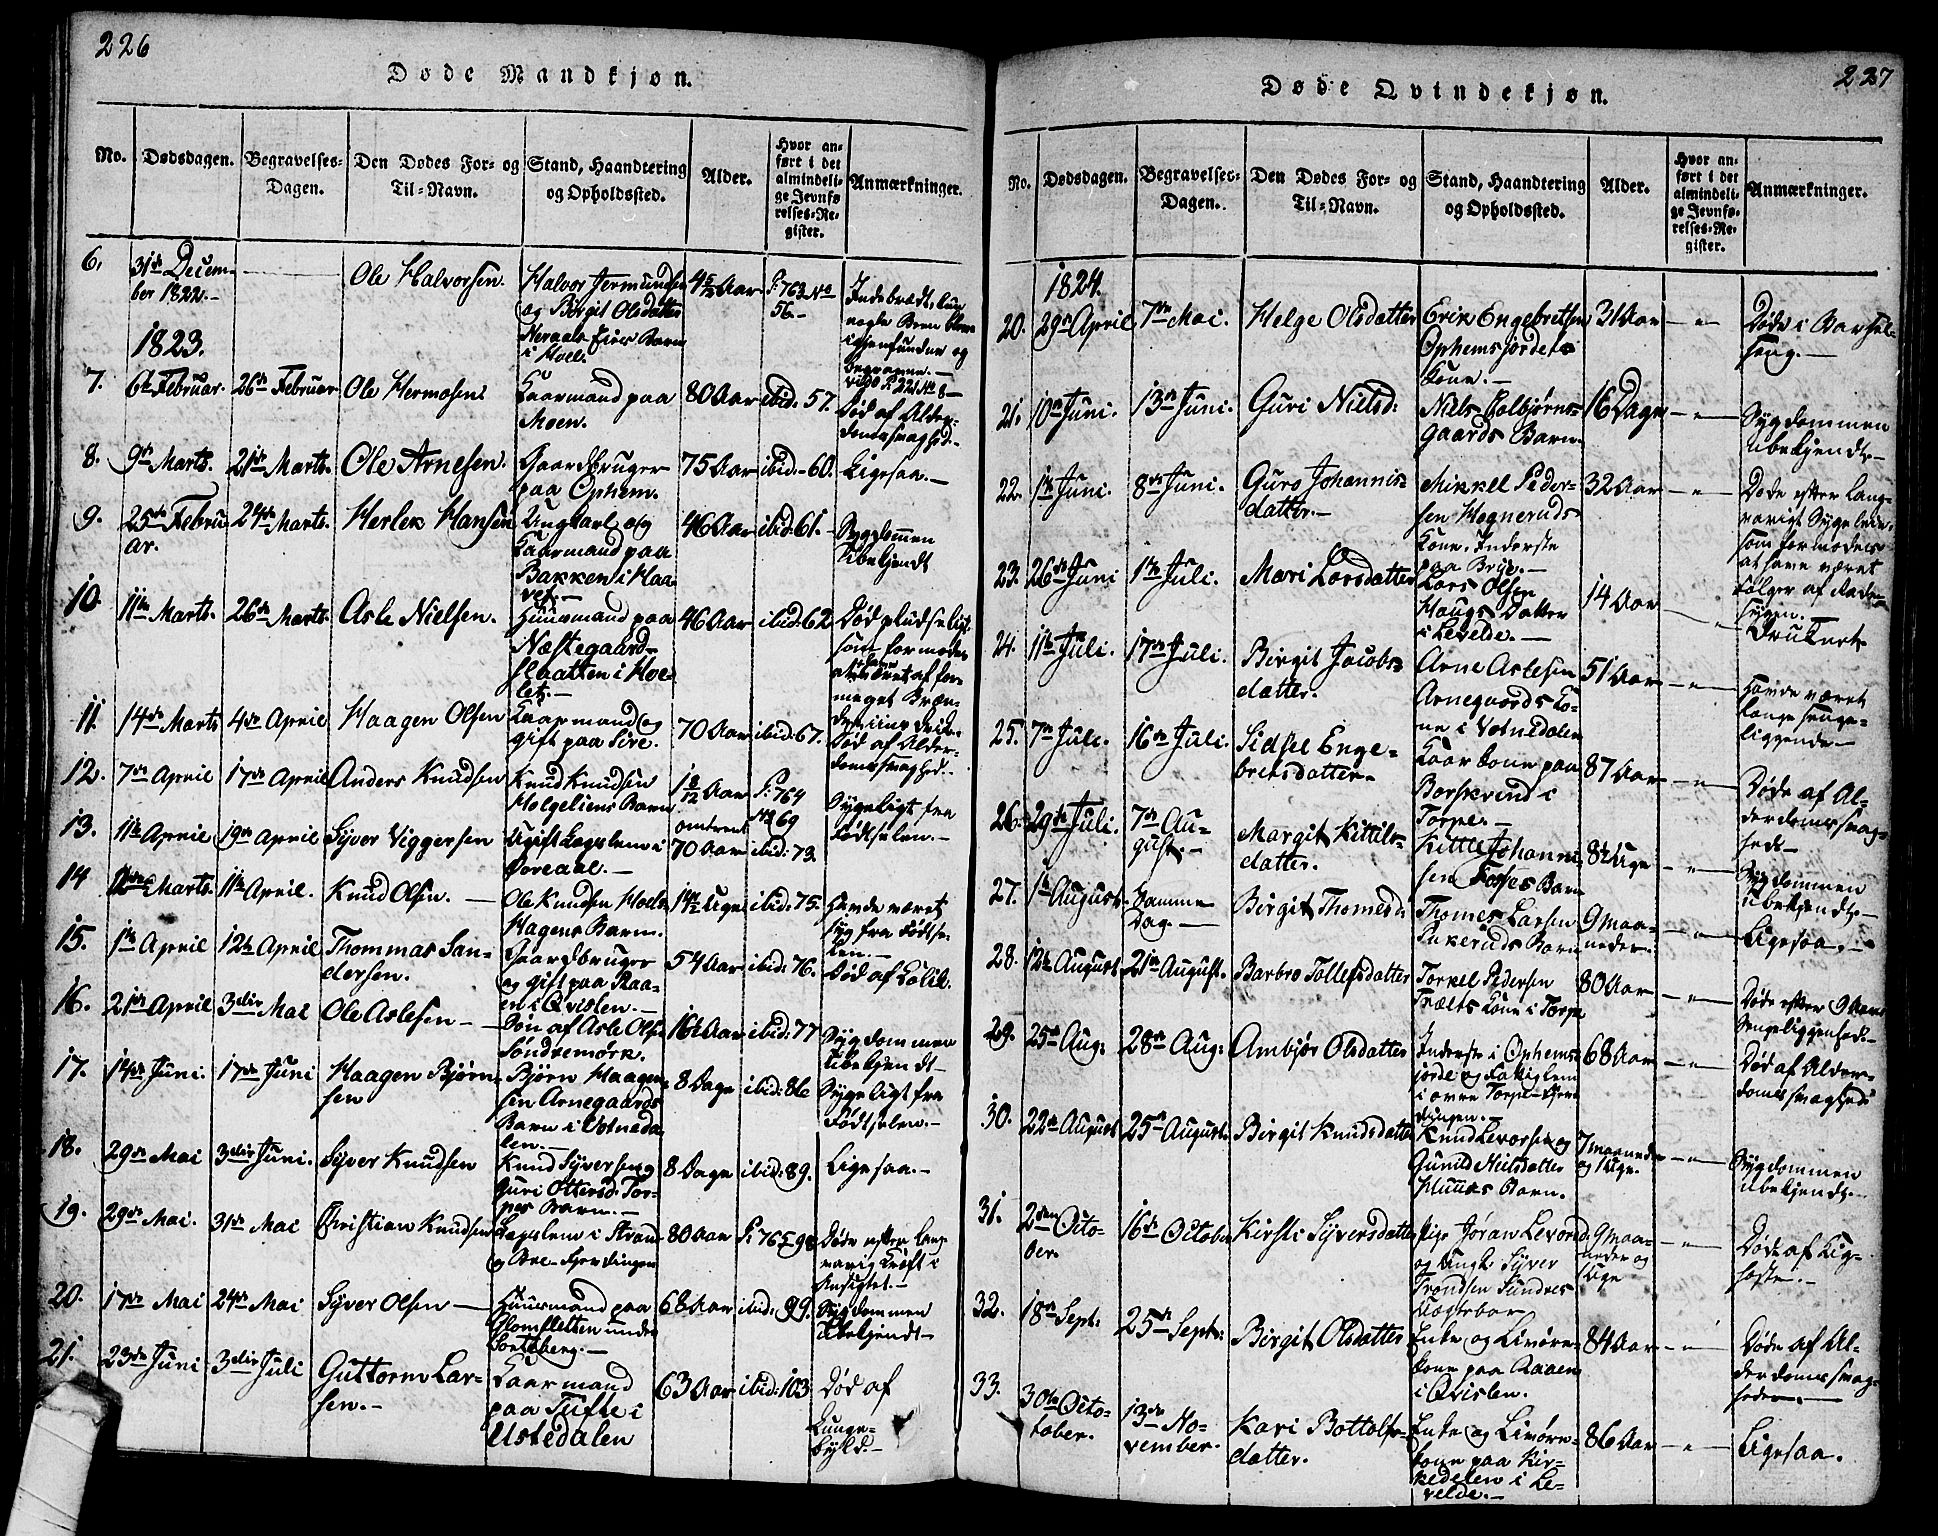 226
Døde Mandkjøn.
No. Dødsdagen. Begravelses-Dagen. Den Dødes For- og Til-Navn. Stand, Haandtering og Opholdssted. Alder. Hvor anført i det almindelige Jevnførelses-Register. Anmærkninger.
6. 31te December 1822.- Ole Halvorsen. Halvor Jermundsen og Birgit Olsdatter Barn i Hoel. P: 763 No 56.-
1823.
7. 6te Februar. 26de Februar Ole Hermosen Kaarmand paa Moen. 80 Aar ibid: 57. Død af Alderdomssvaghed.-
8. 9de Marts. 21de Marts. Ole Arnesen. Gaardbruger paa Ophem. 75 Aar ibid:- 60. Ligesaa.-
9. 25de Februar. 24de Marts. Herlek Hansen Ungkarl og Kaarmand paa Bakken i 46 Aar ibid: 61. Sygdommen Ubekjendt
10. 11te Marts. 26de Marts. Asle Nielsen. Huusmand paa Næstegaardslaatten i Holet.- 46 Aar ibid: 62 Død pludselig som formodes
11. 14de Marts 4de April Haagen Olsen Kaarmand og gift paa Sire. 70 Aar ibid: 67. Død af Alderdomssvaghed.-
12. 7de April 17de April Anders Knudsen Knud Knudsen Holgeliens Barn 1 8/12 Aar P: 764 No 69 Sygeligt fra Fødselen.-
13. 11te April 19de April Syver Viggersen Ugift Lægslem i omtrent 70 Aar ibid: 73.
14 Marts. 11te April. Knud Olsen.- Ole Knudsen Hagens Barn. 14½ Uge ibid: 75. Havde været syg fra Fødselen.-
15. 1te April 12te April Thommas Sandersen. Gaardbruger og gift paa Raaen i Qvislen.- 54 Aar ibid: 76. Død af Colik.
16. 21de April 3die Mai Ole Aslesen- Søn af Asle Olsen Søndremørk. 16½ Aar ibid: 77 Sygdommen Ubekjendt-
17. 14de Juni. 17de Juni Haagen Bjørnsen Bjørn Haagensen Arnegaards Barn i Votnedalen.- 8 Dage ibid: 86 Sygeligt fra Fødselen.-
18. 29de Mai 3die Juni. Syver Knudsen Knud Syversen og Guri Ottersd: Torpes Barn.- 8 Dage ibid: 89. Ligesaa.-
19. 29de Mai. 31de Mai Christian Knudsen Lægslem i 80 Aar P: 765 Døde efter langvarig Kræft i Ansigtet.-
20. 17de Mai 24de Mai Syver Olsen- Huusmand paa Blomsletten under 68 Aar ibid: 99. Sygdommen Ubekjendt-
21. 23de Juni 3die Juli Guttorm Larsen.- Kaarmand paa Tufte i Ustedalen 63 Aar ibid: 103 Død af Lungebyld.-
227
Døde Qvindekjøn.
No. Dødsdagen. Begravelses-Dagen. Den Dødes For- og Til-Navn. Stand, Haandtering og Opholdssted. Alder. Hvor anført i det almindelige Jevnførelses-Register. Anmærkninger.
1824.
20. 29de April 7de Mai. Helge Olsdatter Erik Engebretsen Ophemsjordets Kone.- 31 Aar -"- Døde i Barselseng.-
21. 10de Juni. 13de Juni. Guri Nielsd: Niels Golbjørnsgaards Barn. 16 Dage -"- Sygdommen ubekjendt-
22. 1te Juni. 8de Juni. Guro Johannisdatter.- Mikkel Pedersen Hogneruds Kone. Inderste paa Brye.- 32 Aar -"- Døde efter langvarigt Sygeleie, som formodes at have været Følger af
23. 26de Juni 1te Juli. Mari Larsdatter Lars Olsen Haugs Datter i Levelde.- 14 Aar -"- Druknet
24. 11te Juli. 17de Juli. Birgit Jacobsdatter. Arne Aslesen Arnegaards Kone i Votnedalen 51 Aar -"- Havde været lange sengeliggende-
25. 7de Juli. 16de Juli. Sidsel Engebretsdatter- Kaarkone paa i Torpe.- 87 Aar -"- Døde af Alderdomssvaghed-
26. 29de Juli. 7de August.- Margit Kittilsdatter. Kittle Johannisen Fosses Barn 8½ Uge -"- Sygdommen Ubekjendt-
27. 1te August. Samme Dag.- Birgit Thomesd: Thomes Larsen Barn 9 Maaneder. -"- Ligesaa.-
28. 12te August 21de August. Barbro Tollefsdatter Torkel Pedersen Trælts Kone i Torpe 80 Aar -"- Døde efter 9 Aars Sengeliggenhed.-
29. 25de Aug: 28de Aug: Ambjør Olsdatter Inderste i Ophemsjorde og Fattiglem i øvre Torpe-Fjerdingen. 68 Aar -"- Død af Alderdomssvaghed
30. 22de August 25de August. Birgit Knudsdatter Knud Levorsen og Gunild Neilsdatter Barn. 7 maaneder og 1 Uge. -"- Sygdommen ubekjendt.-
31. 2den October 16de October Kirsti Syversdatter Pige Jøran Levorsd: og Ungk: Syver Trondsen Sundres Uægtebarn 9 Maaneder og 1 Uge -"- Døde af Kighoste.-
32. 18de Sept: 25de Sept: Birgit Olsdatter Enke og Livørekone paa Raaen i Qvislen. 84 Aar -"- Døde af Alderdomssvaghed.-
33. 30te October. 13de November. Kari Bottolfsdatter. Enke og Livørekone paa Kirkedelen i Levelde.- 86 Aar -"- Ligesaa.